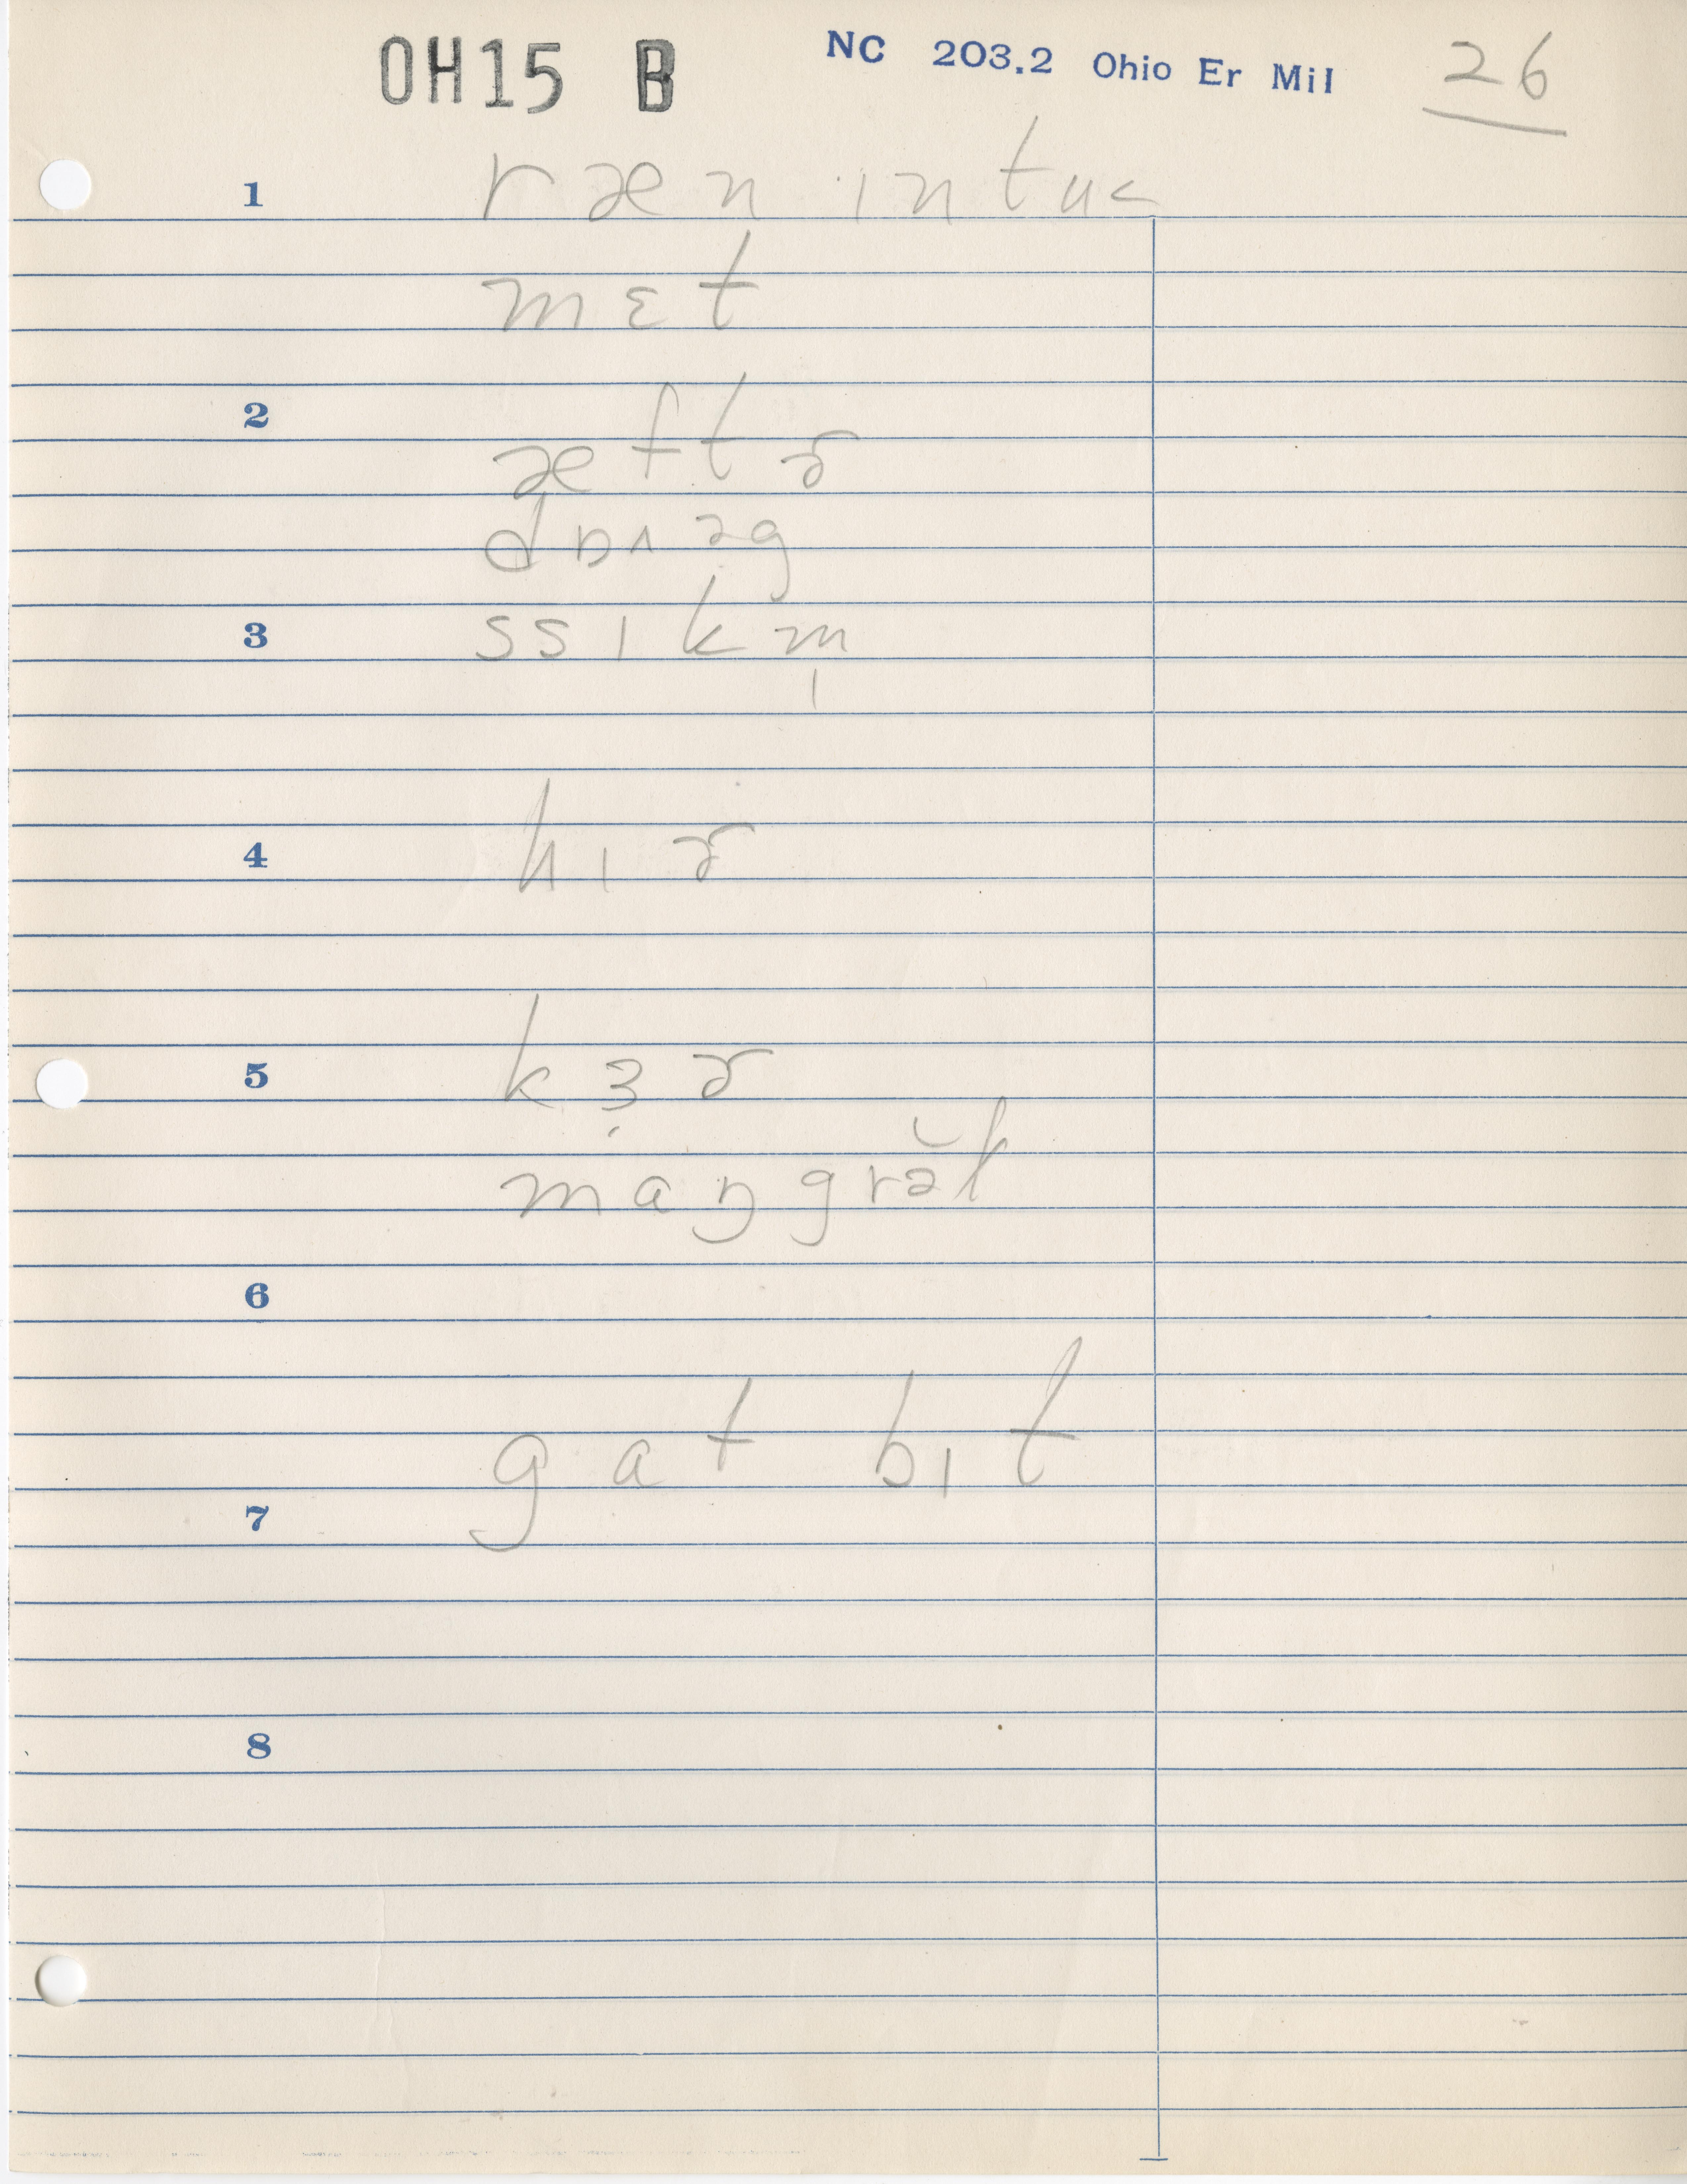 OH15 B NC 203.2 Ohio Er Mil 26
1 ræn ɪntu<
mɛt
2 æftɚ
3 ssɪkm̩
4 hɪɚ
5 kɜɚ
maŋgrəl
6
gat bɪt
7
8